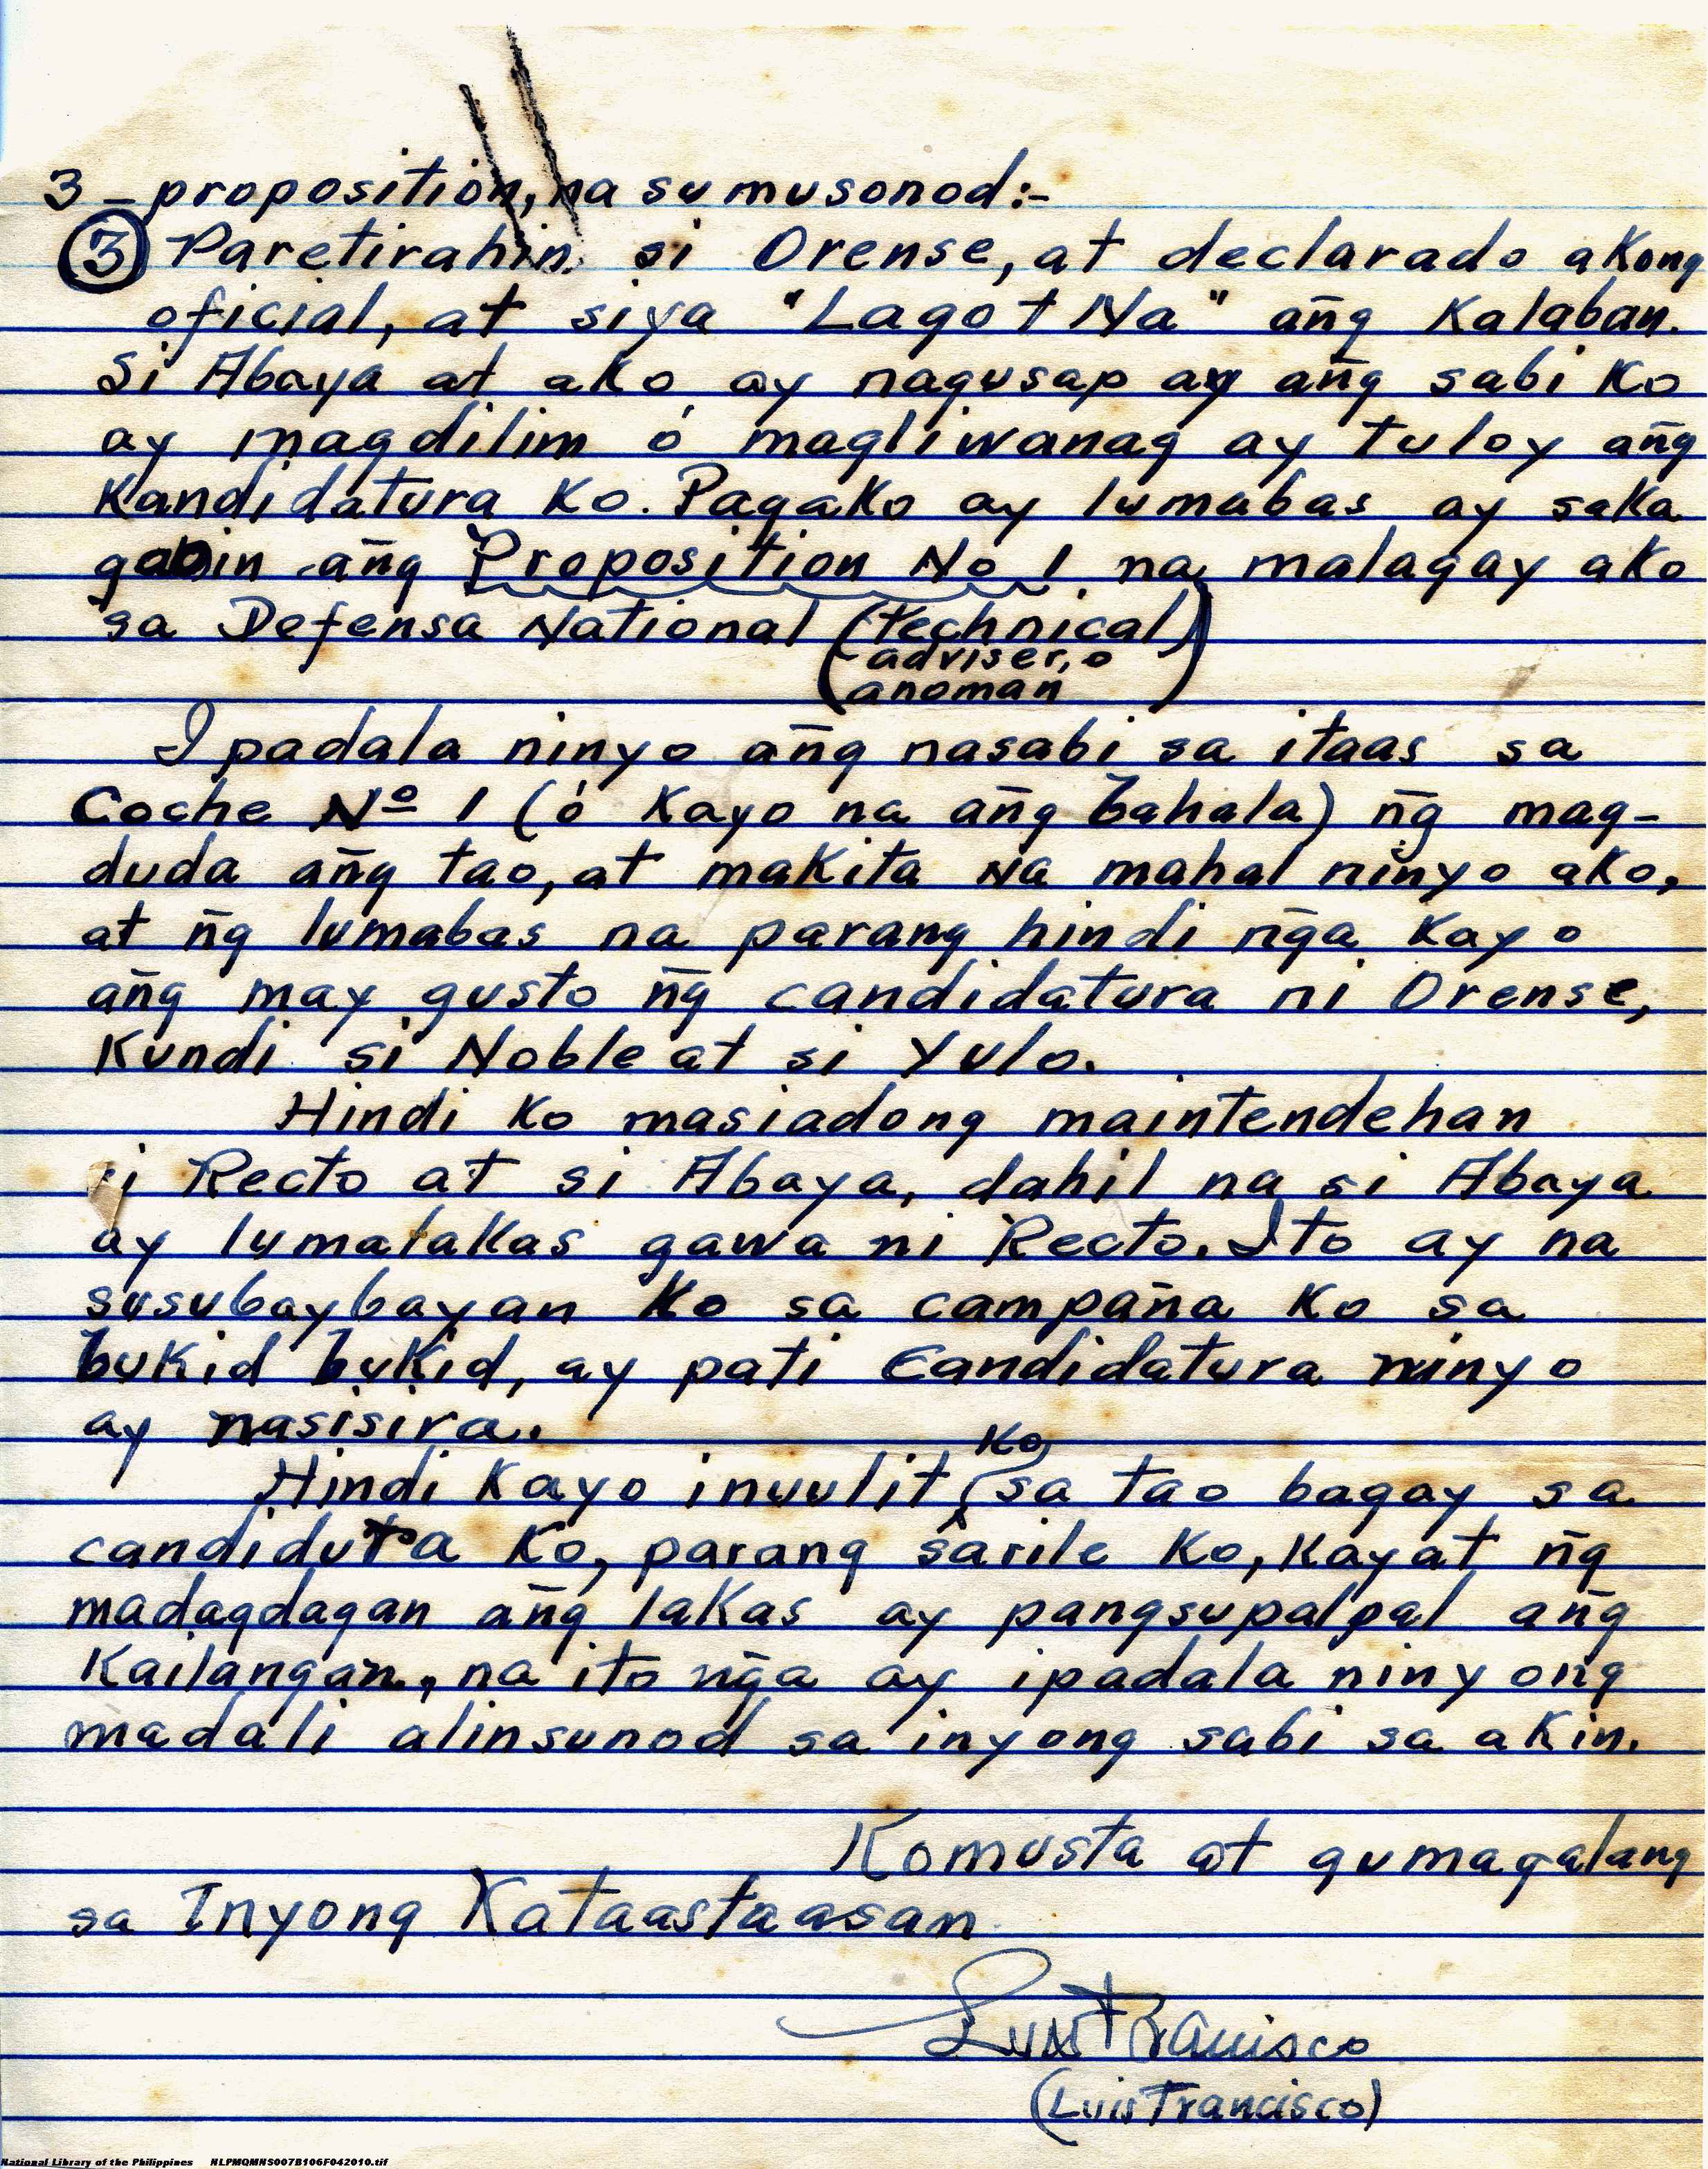 3 - proposition, na sumusonod:-
③ Paretirahin si Orense, at declarado akong
oficial, at siya "Lagot Na" añg Kalaban.
Si Abaya at ako ay nagusap ay añg sabi Ko
ay magdilim ó magliwanag ay tuloy añg
Kandidatura Ko. Pagako ay lumabas ay saka
gaoin añg Proposition No 1, na malagay ako
sa Defensa National (technical
adviser, o
anoman)
Ipadala ninyo añg nasabi sa itaas sa
Coche Nº 1 (ó Kayo na añg bahala) ñg mag-
duda añg tao, at makita Na mahal ninyo ako,
at ñg lumabas na parang hindi ñga Kayo
añg may gusto ñg candidatura ni Orense,
Kundi si Noble at si Yulo.
Hindi Ko masiadong maintendehan
si Recto at si Abaya, dahil na si Abaya
ay lumalakas gawa ni Recto. Ito ay na
susubaybayan Ko sa campaña Ko sa
bukid bukid, ay pati Candidatura ninyo
ay nasisira.
Hindi Kayo inuulit Ko sa tao bagay sa
candiduta Ko, parang sarile Ko, Kayat ñg
madagdagan añg lakas ay pangsupalpal añg
Kailangan, na ito ñga ay ipadala ninyong
madali alinsunod sa inyong sabi sa akin.
Komusta at gumagalang
sa Inyong Kataastaasan
Luis Francisco
(Luis Francisco)
National Library of the Philippines NLPMQMNS007B106F042010.tif